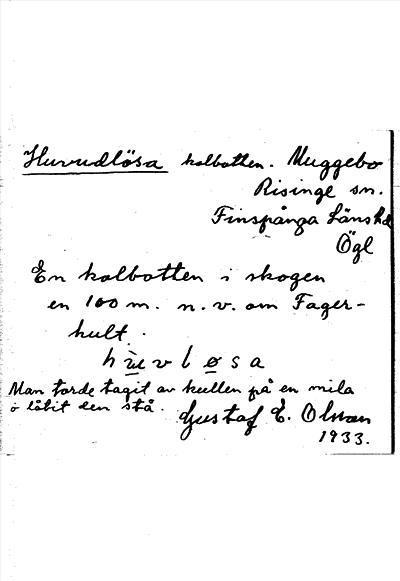 Huvudlösa kolbotten. Muggebo
Risinge sn.
Finspånga länshd
Ögl
En kolbotten i skogen
en 100 m. n.v. om Fager-
hult.
hùvløsa
Man torde tagit av kullen på en mila
o låtit den stå.
Gustaf E. Olsson
1933.